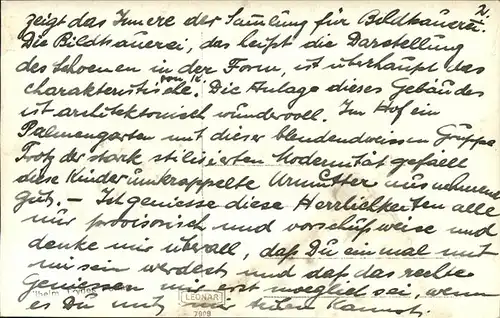 2.
zeigt das Innere der Samlung für Bildhauerei.
Die Bildhauerei, das heißt die Darstellung
des Schoenen in der Form, ist überhaupt das
charakteristische von K. Die Anlage dieses Gebäudes
ist architektonisch wundervoll. Im Hof ein
Palmengarten mit dieser blendendweissen Gruppe
Trotz der stark stilisierten Modernität gefaellt
diese Kinderumkrappelte Urmutter aus nehmend
gut. – Ich geniesse diese Herrlichkeiten alle
nur provisorisch und vorschußweise und
denke mir überall, daß Du einmal mit
mir sein werdest und daß das rechte
Geniessen mir erst moeglich sei, wenn
es Du mit mir tuen kannst.
LEONAR
7909